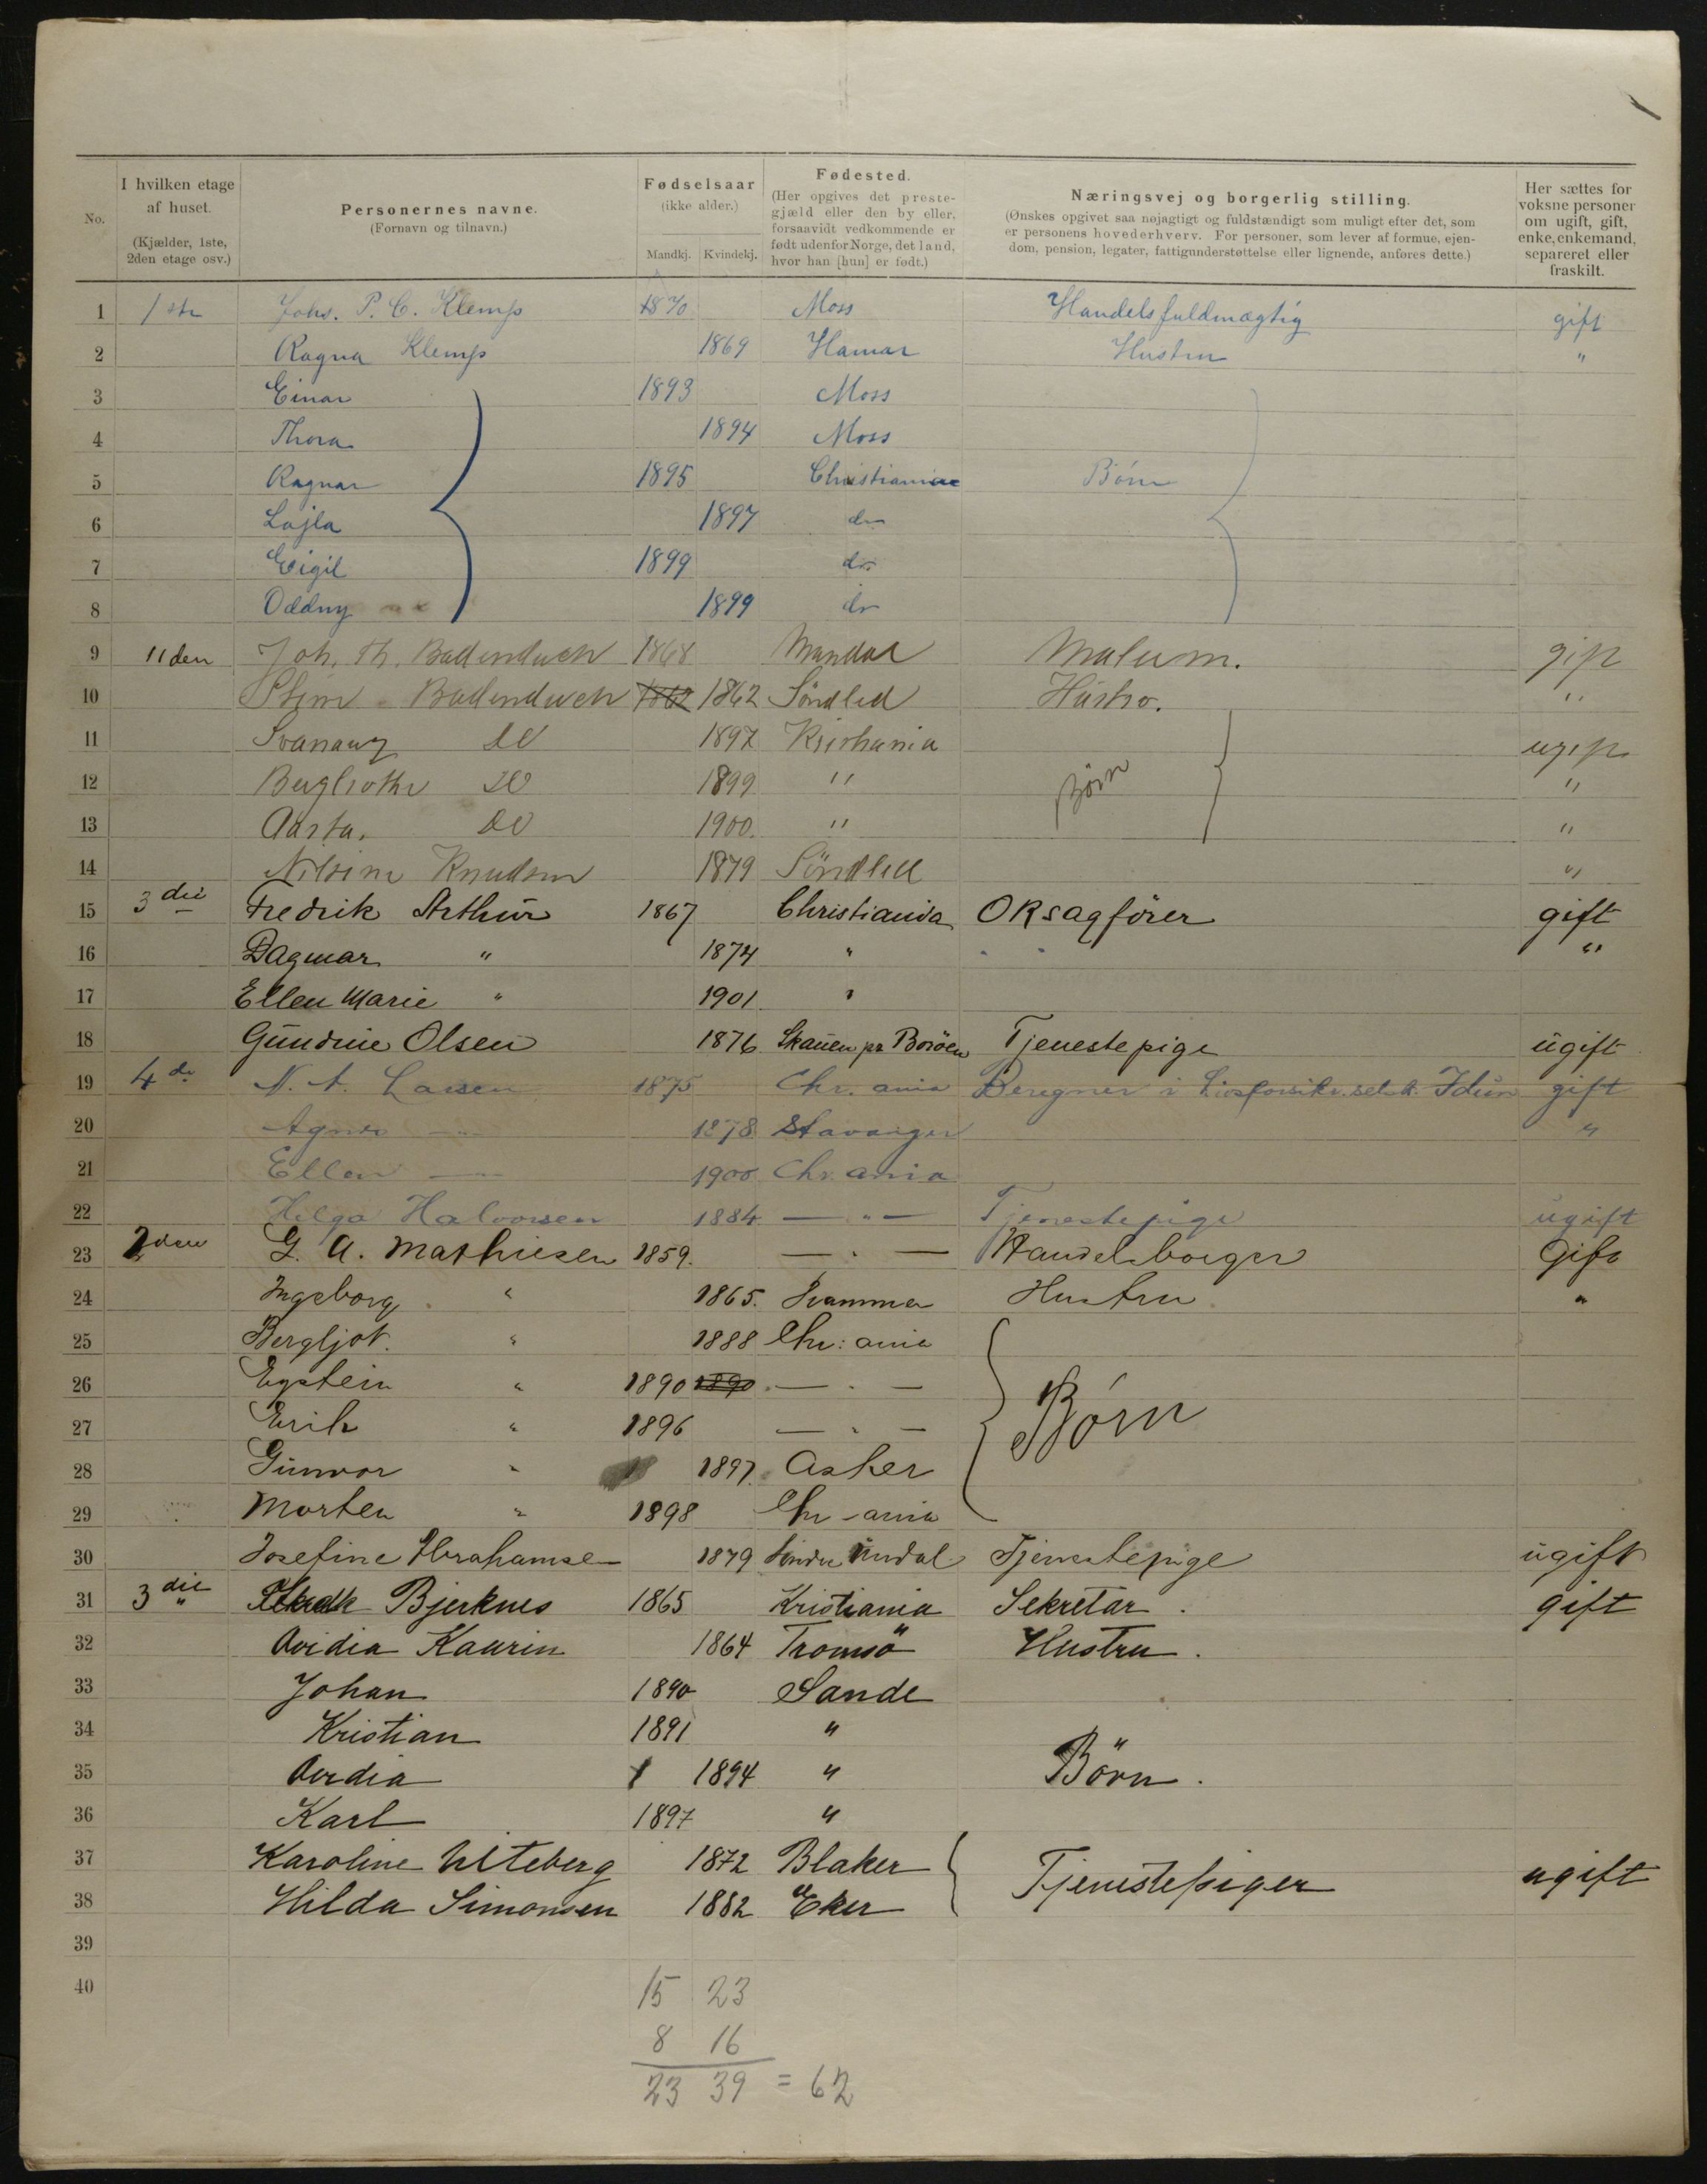 No.
I hvilken etage af huset. (Kjælder, 1ste, 2den etage osv.)
Personernes navne. (Fornavn og tilnavn.)
Fødselsaar (ikke alder.) Mandkj. Kvindekj.
Fødested. (Her opgives det prestegjæld eller den by eller, forsaavidt vedkommende er født udenfor Norge, det land, hvor han [hun] er født.)
Næringsvej og borgerlig stilling. (Ønskes opgivet saa nøjagtigt og fuldstændigt som muligt efter det, som er personens hovederhverv. For personer, som lever af formue, ejendom, pension, legater, fattigunderstøttelse eller lignende, anføres dette.)
Her sættes for voksne personer om ugift, gift, enke, enkemand, separeret eller fraskilt.
1 1ste Johs. P. C. Klemp 1870 Moss Handelsfuldmægtig gift
2 Ragna Klemp 1869 Hamar Hustru "
3 Einar 1893 Moss
4 Thora 1894 Moss
5 Ragnar 1895 Christiania Börn
6 Lajla 1897 do
7 Eigil 1899 do
8 Oddny 1899 do
9 11den Joh. Th. 1868 Mandal gift
10 1862 1862 Söndled Hustro. "
11 Do 1897 Kristiania ugift
12 Do 1899 " Börn "
13 Aasta. Do 1900. " "
14 Nilsine Knudsen 1879 Söndled "
15 3die Fredrik Arthur 1867 Christiania ORsagfører gift
16 Dagmar " 1874 " "
17 Ellen Marie " 1901 "
18 Gundine Olsen 1876 Tjenestepige ugift
19 4de N. A. Larsen 1875 Chr. ania Beregner i Livsforsikr. selsk. Idun gift
20 Agnes — " — 1878 Stavanger "
21 Ellen — " — 1900 Chr. ania
22 Helga Halvorsen 1884 — " — Tjenestepige ugift
23 2den G. A. Mathiesen 1859. — " — Handelsborger Gift
24 Ingeborg " 1865. Hustru "
25 Bergljot. " 1888 Chr: ania
26 Eystein " 1890 1890 — " —
27 Erik " 1896 — " — Börn
28 Gunvor " 1897. Asker
29 Morten " 1898 Chr - ania
30 Josefine Abrahamsen 1879 Söndre Undal Tjenestepige ugift
31 3die " Bjerknes 1865 Kristiania Sekretær. gift
32 Avidia Kaurin 1864 Tromsö Hustru.
33 Johan 1890 Sande
34 Kristian 1891 "
35 Avidia 1894 " Börn.
36 Karl 1897 "
37 Karoline Uteberg 1872 Blaker Tjenestepiger ugift
38 Hilda Simonsen 1882 Eker
39
40
15 23
8 16
23 39 = 62